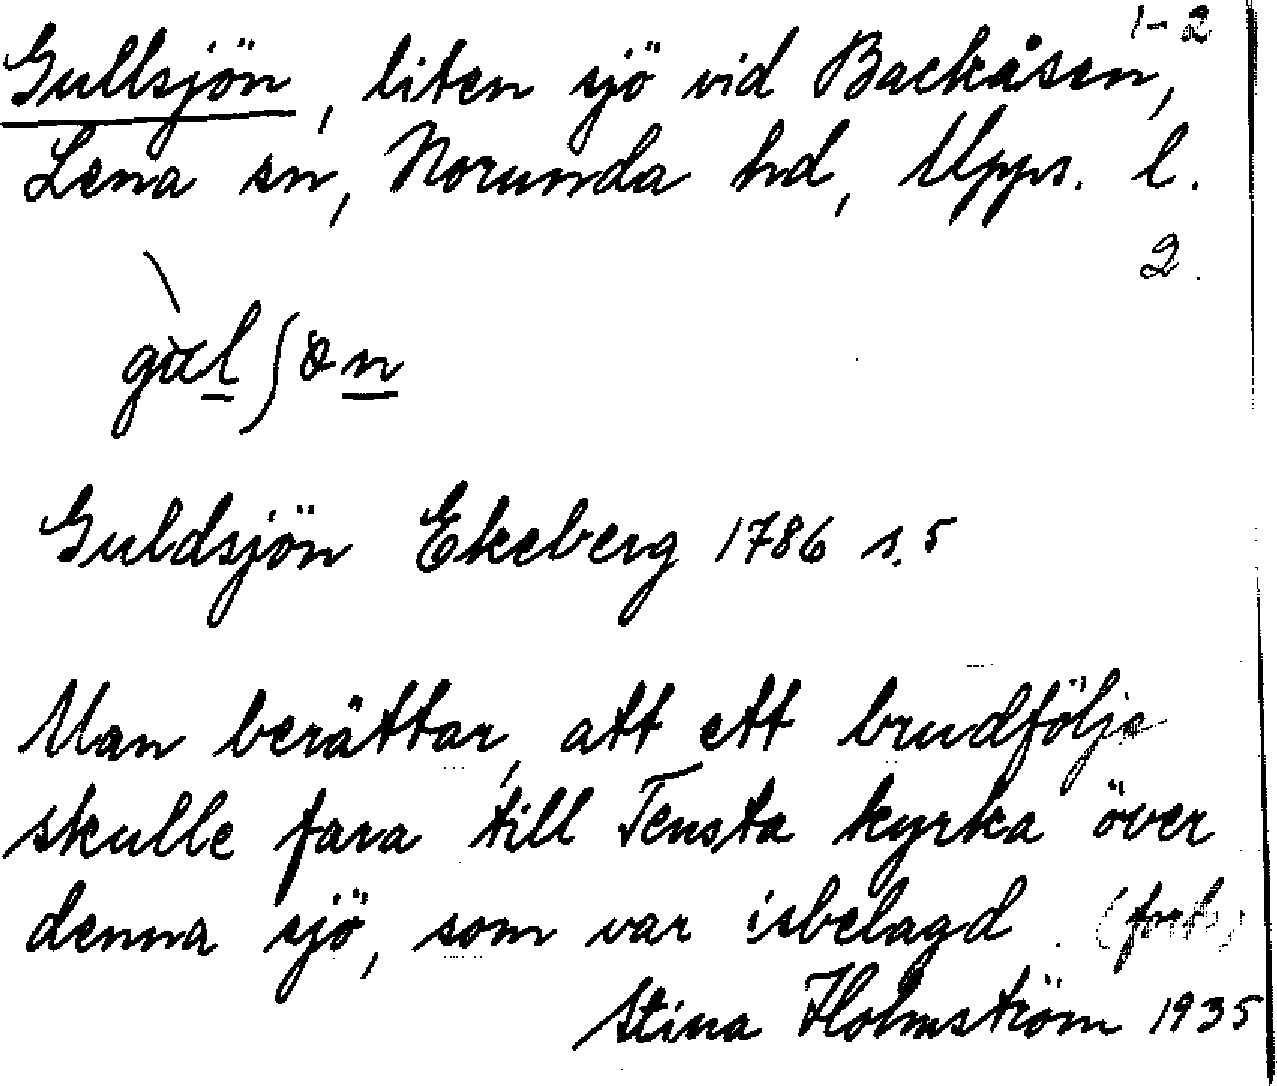 1-2
Gullsjön, liten sjö vid Backåsen,
Lena sn, Norunda hd, Upps. l.
2.
Guldsjön Ekeberg 1786 s. 5
Man berättar, att ett brudfölje
skulle fara till Tensta kyrka över
denna sjö, som var isbelagd. (forts)
Stina Holmström 1935